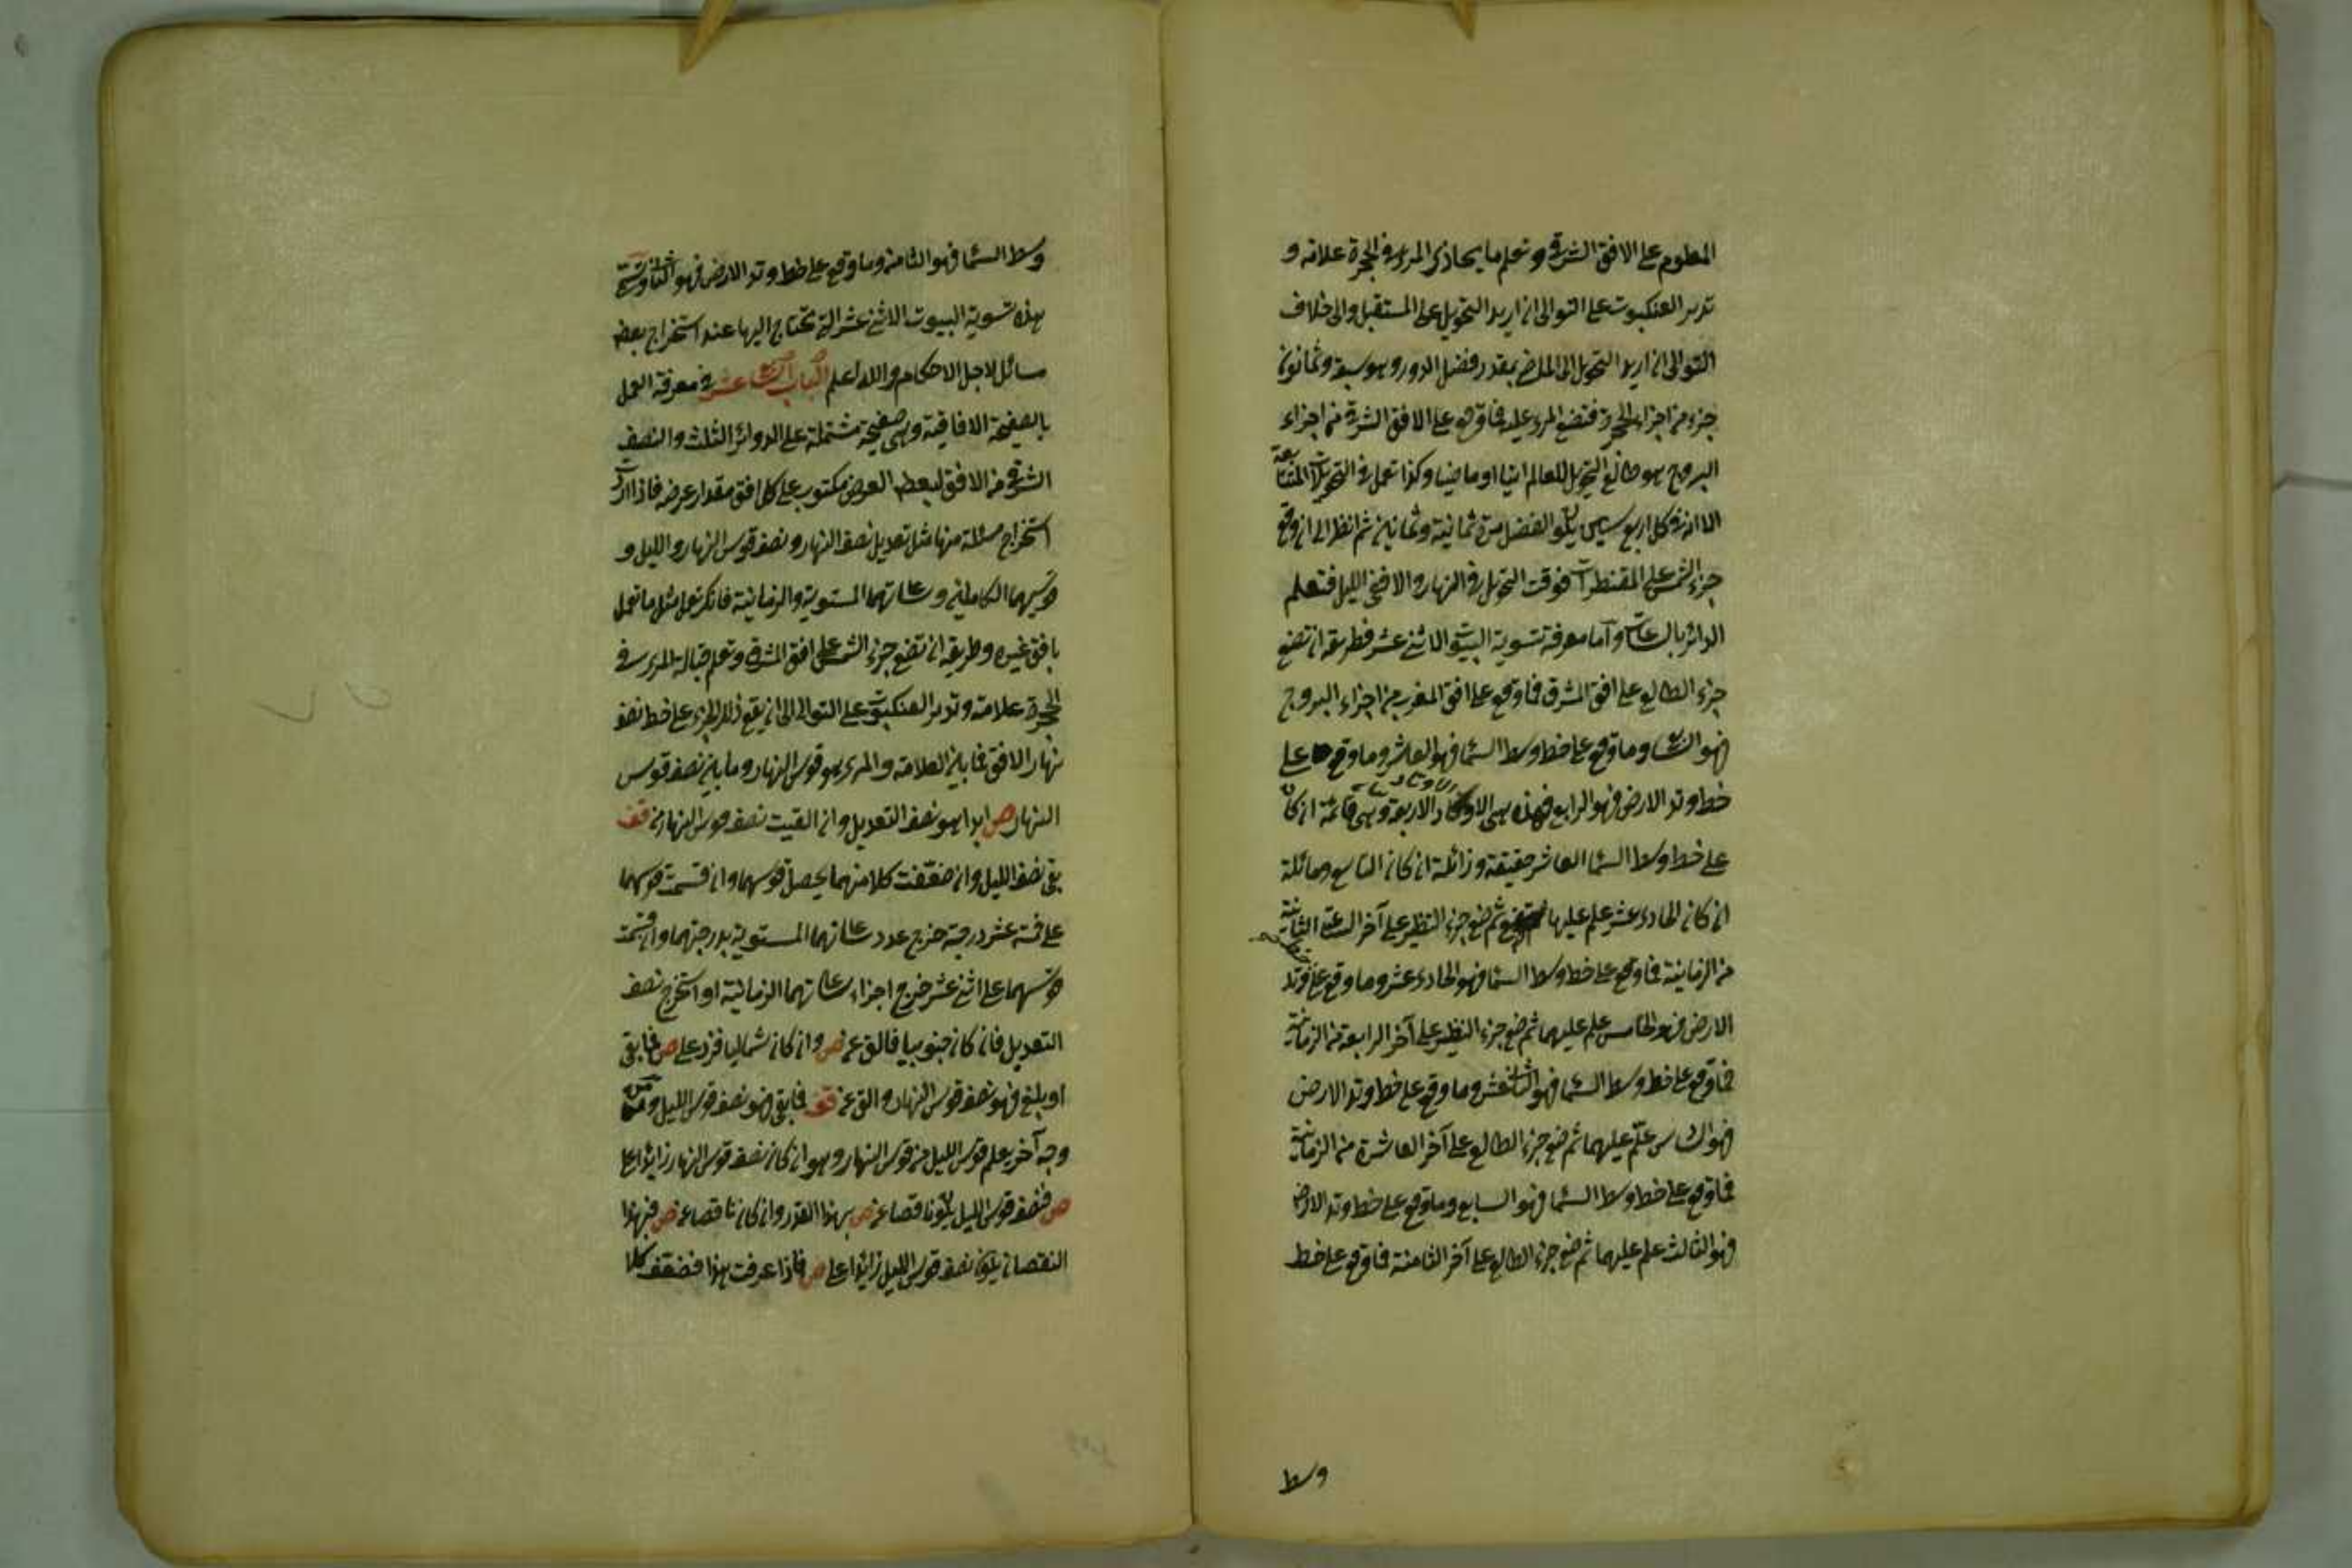 المعلوم على الافق الشرقى وتعلم ما يحاذى المرى فى الحجرة علامة و
تدير العنكبوت على التوالى ان اريد التحويل على المستقبل والى خلاف
التوالى ان اريد التحويل الى الماضى بمقدر فضل الدور وهو سبعة وثمانون
جزء من اجزاء الحجرة فتضع المرى عليه فما وقع على الافق الشرقى من اجزاء
البروج هو طالع التحويل للعالم اتيا او ماضيا وكذا تعمل فى التحويلات المتتابعة
الا ان فى كل اربع سنين يكون الفضل مرة ثمانية وثمانين ثم انظر الى ان وقع
جزء الشمس على المقنطرات فوقت التحويل فى النهار والا ففى الليل فتعلم
الدائر بالساعات واما معرفة تسوية البيوت الاثنى عشر فطريقه ان تضع
جزء الطالع على افق المشرق فما وقع على افق المغرب من اجزاء البروج
فهو السابع وما وقع على خط وسط السما فهو العاشر وما وقع على
خط وتد الارض فهو الرابع فهذه هى الاوتاد الاربعة وهى قائمة ان كان
على خط وسط السما العاشر حقيقة وزائلة ان كان التاسع ومائلة
ان كان الحادى عشر علم عليها ثم ضع جزء النظير على آخر الساعة الثانية
من الزمانية فما وقع على خط وسط السما فهو الحادى عشر وما وقع على وتد
الارض فهو الخامس علم عليهما ثم ضع جزء النظير على آخر الرابعة من الزمانية
فما وقع على خط وسط السما فهو الثانى عشر وما وقع على خط وتد الارض
فهو السادس علّم عليهما ثم ضع جزء الطالع على آخر العاشرة من الزمانية
فما وقع على خط وسط السما فهو السابع وما وقع على خط وتد الارض
فهو الثالث علم عليهما ثم ضع جزء الطالع على آخر الثامنة فما وقع على خط
وسط
وسط السما فهو الثامن وما وقع على خط وتد الارض فهو الثانى
هذه تسوية البيوت الاثنى عشر التى تحتاج اليها عند استخراج بعض
مسائل لاجل الاحكام والله اعلم الباب عشر فى معرفة العمل
بالصفيحة الافاقية وهى صفيحة مشتملة على الدوائر الثلث والنصف
الشرقى من الافق لبعض العرض مكتوب على كل افق مقدار عرضه فاذا اردت
استخراج مسئلة منها مثل تعديل نصف النهار ونصف قوس النهار والليل و
قوسيهما الكاملين وساعاتهما المستوية والزمانية فانك تعمل مثل ما تعمل
بافق غيره وطريقه ان تضع جزء الشمس على افق المشرق وتعلم قبالة المرى فى
الحجرة علامة وتدير العنكبوت على التوالى الى ان يقع ذلك الجزء على خط نصف
نهار الافق فما بين العلامة والمرى هو قوس النهار وما بين نصف قوس
النهار ص ابدا هو نصف التعديل وان القيت نصف قوس النهار من قف
بقى نصف الليل وان ضعّفت كلا منهما يحصل قوسهما وان قسمت قوسهما
على خمسة عشر درجة خرج عدد ساعاتهما المستوية بدرجتهما وان قسمت
قوسهما على اثنى عشر خرج اجزاء ساعاتهما الزمانية او استخرج نصف
التعديل فان كان جنوبيا فالق عن ص وان كان شماليا فزد على ص فما بقى
او بلغ فهو نصف قوس النهار والق عن قف فما بقى فهو نصف قوس الليل ومن
وجه آخر يعلم قوس الليل من قوس النهار وهو ان كان نصف قوس النهار زايدا على
ص فنصف قوس الليل يكون ناقصا عن ص بهذا القدر وان كان ناقصا عن ص فبهذا
النقصان يكون نصف قوس الليل زائدا على ص فاذا عرفت هذا فضعّف كلا